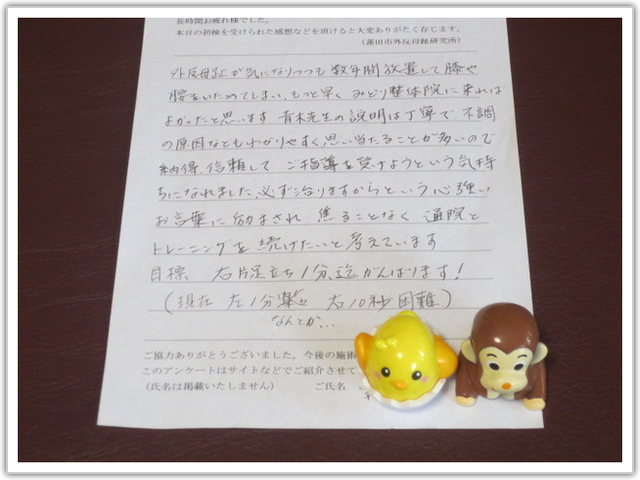 長時間お疲れ様でした。
本日の初検を受けられた感想などを頂けると大変ありがたく存じます。
(蓮田市外反母趾研究所)
外反母趾が気になりつつも数年間放置して膝や
腰をいためてしまい、もっと早くみどり整体院に来れば
よかったと思います 青木先生の説明は丁寧で 不調
の原因などもわかりやすく、思い当たることが多いので
納得、信頼して ご指導を受けようという気持
ちになれました。必ず治りますからという心強い
お言葉に励まされ 焦ることなく 通院と
トレーニングを続けたいと考えています
目標 右片足立ち1分迄がんばります!
(現在 左1分楽々 右10秒困難)
なんとか…
ご協力ありがとうございました。今後の施術
このアンケートはサイトなどでご紹介させて
(氏名は掲載いたしません) ご氏名